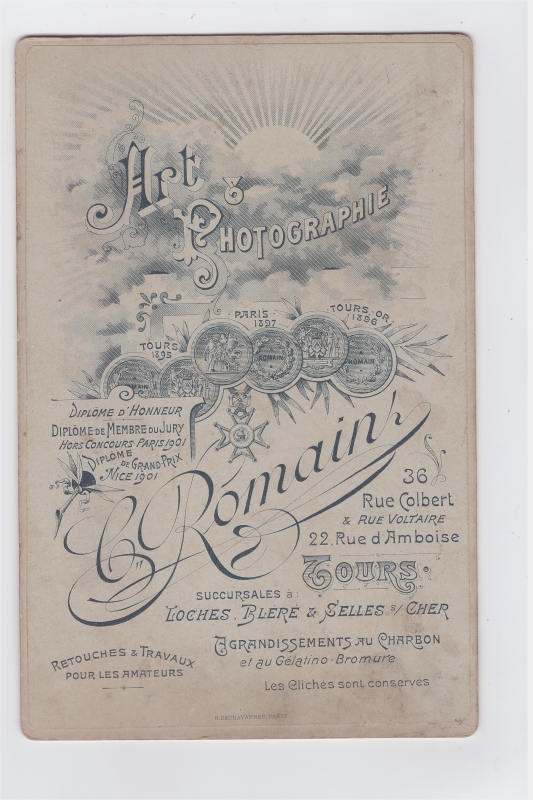 Art &
PHOTOGRAPHIE
TOURS
1895
PARIS
1897
TOURS-OR
1896
ROMAIN
ROMAIN
ROMAIN
DIPLÔME D'HONNEUR
DIPLÔME DE MEMBRE DU JURY
HORS CONCOURS-PARIS 1901
DIPLÔME DE GRAND PRIX
NICE 1901
C. Romain
36
Rue Colbert
& RUE VOLTAIRE
22. Rue d'Amboise
TOURS.
SUCCURSALES à:
LOCHES, BLÉRÉ & SELLES s/ CHER
AGRANDISSEMENTS AU CHARBON
et au Gélatino-Bromure
RETOUCHES & TRAVAUX
POUR LES AMATEURS
Les Clichés sont conservés
PARIS